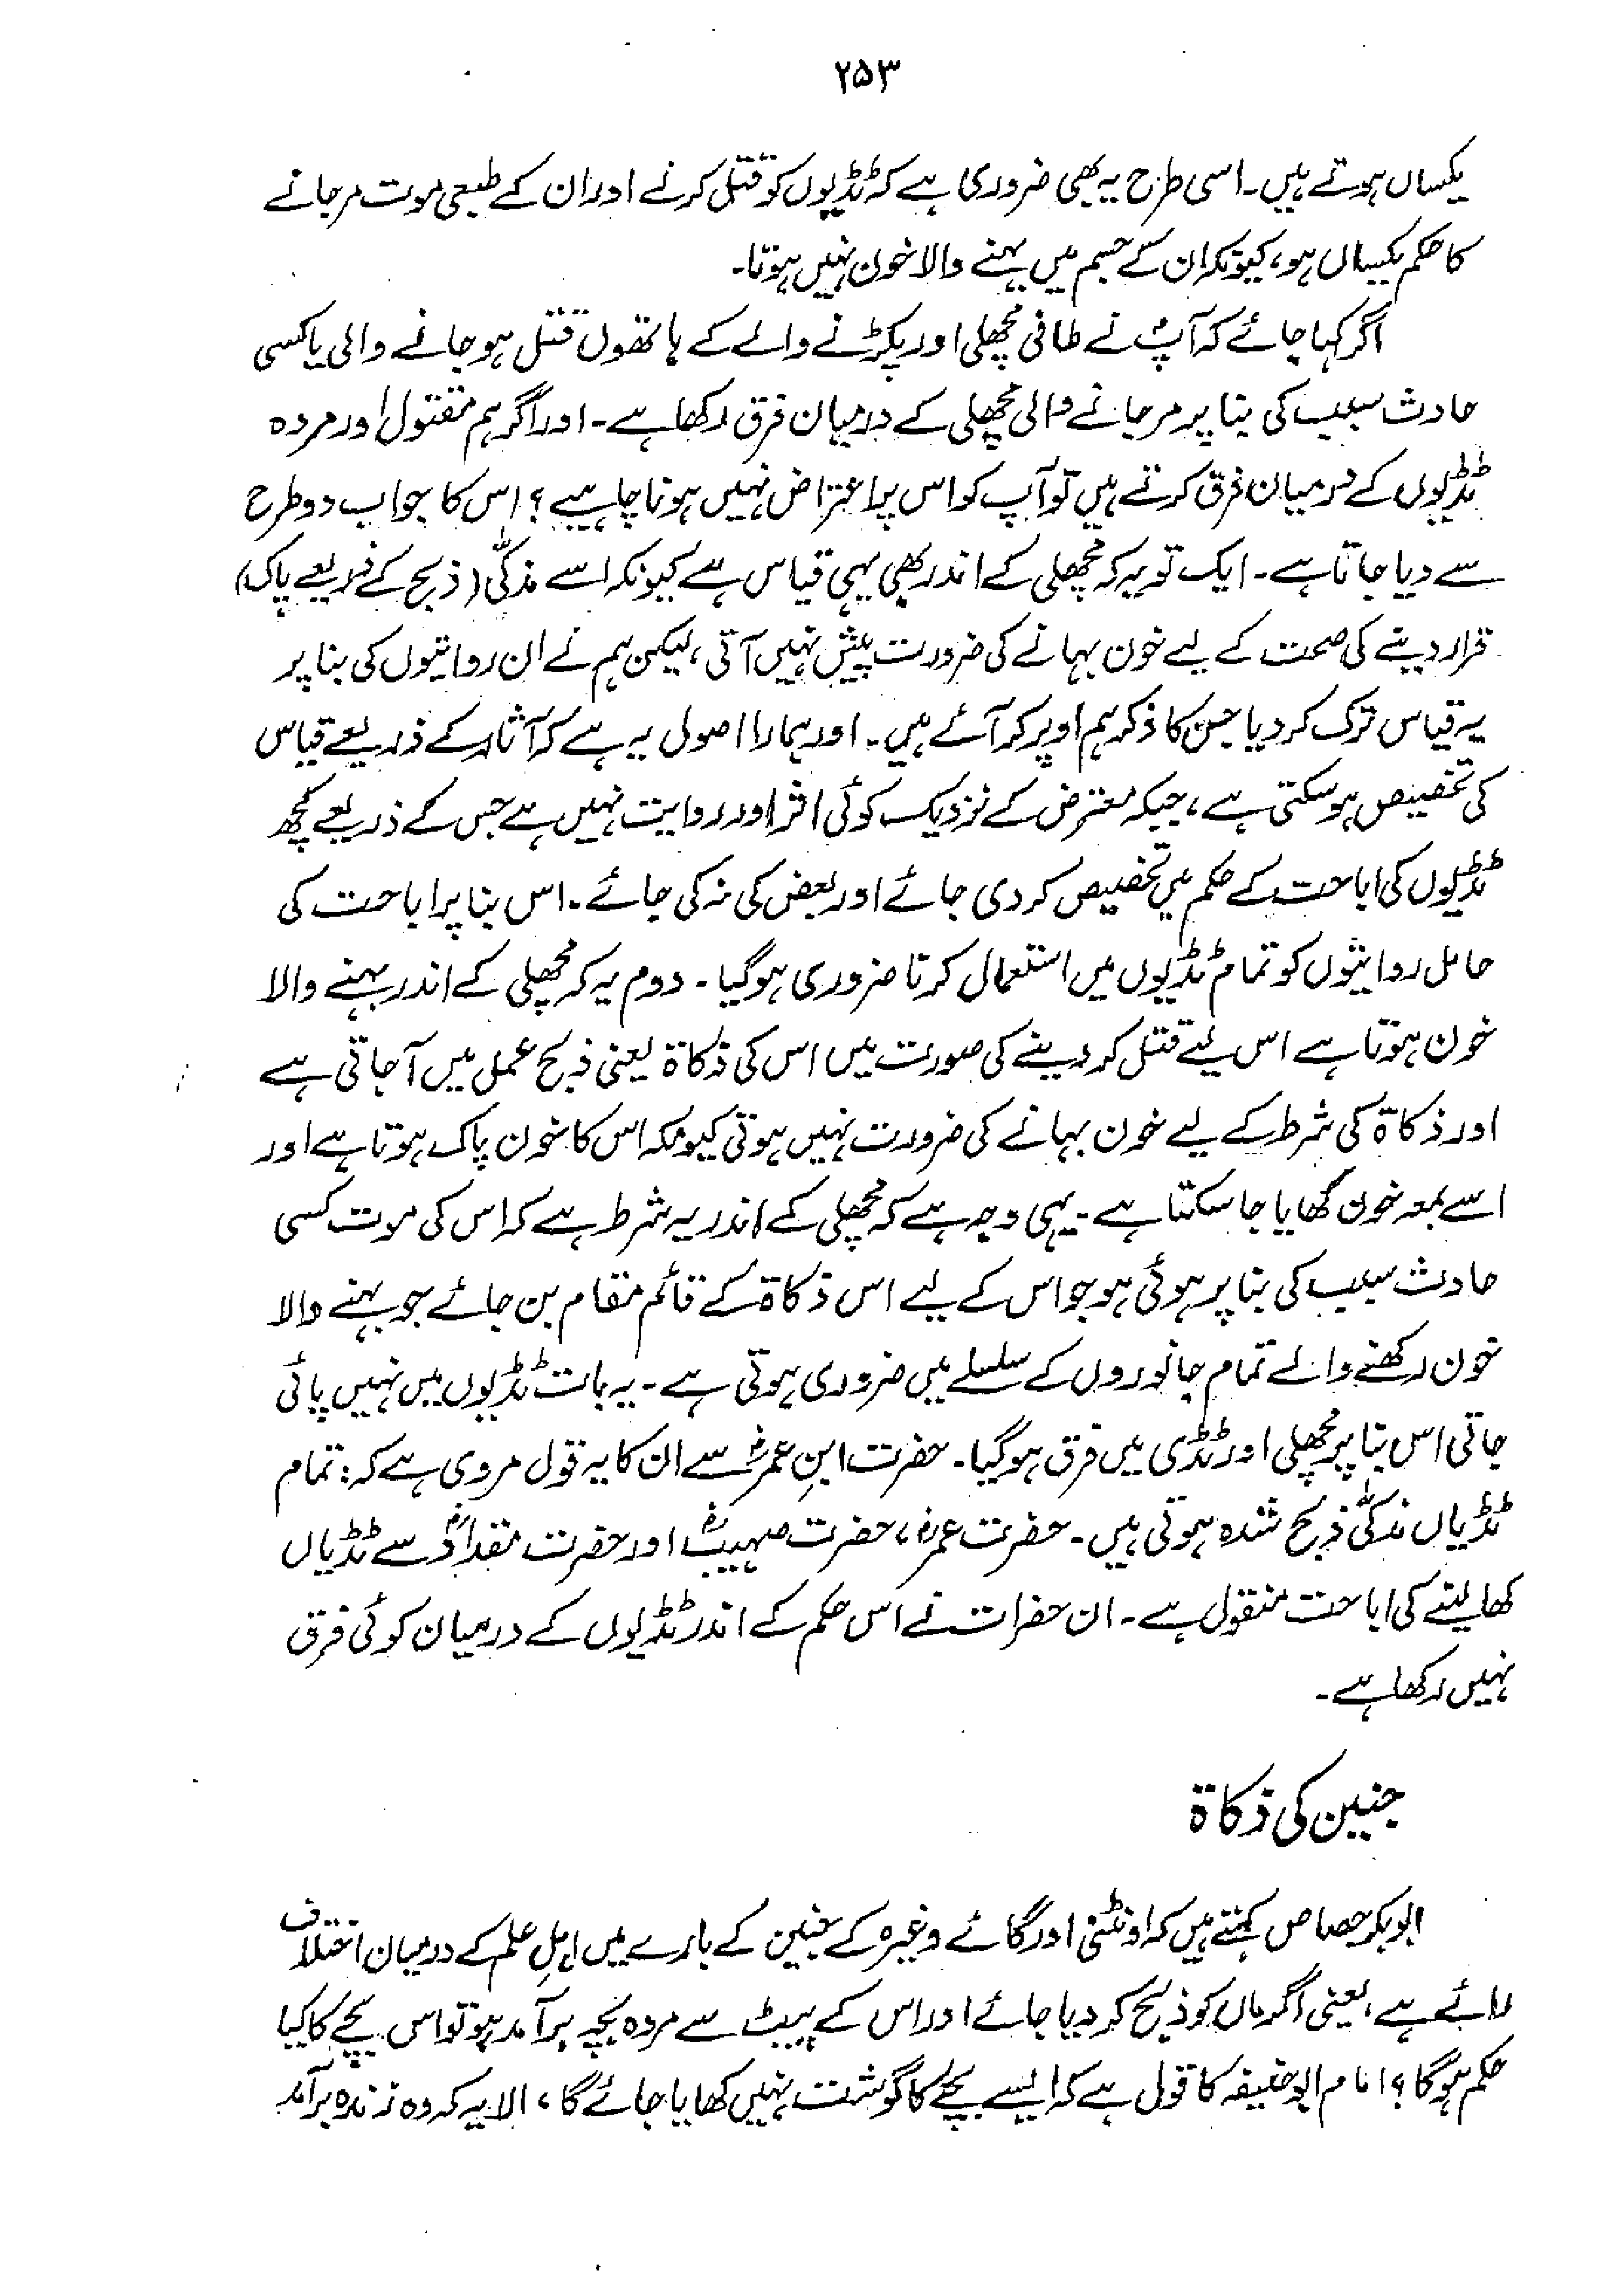 ۲۵۳
یکساں ہوتے ہیں۔ اسی طرح یہ بھی ضروری ہے کہ ٹڈیوں کو قتل کرنے اور ان کے طبعی موت مرجانے
کا حکم یکساں ہو، کیونکہ ان کے جسم میں بہنے والا خون نہیں ہوتا۔
اگر کہا جائے کہ آپؐ نے طافی مچھلی اور پکڑنے والے کے ہاتھوں قتل ہو جانے والی یا کسی
حادث سبب کی بنا پر مرجانے والی مچھلی کے درمیان فرق رکھا ہے۔ اور اگر ہم مقتول اور مردہ
ٹڈیوں کے درمیان فرق کرتے ہیں تو آپ کو اس پر اعتراض نہیں ہونا چاہیے؟ اس کا جواب دو طرح
سے دیا جاتا ہے۔ ایک تو یہ کہ مچھلی کے اندر بھی یہی قیاس ہے کیونکہ اسے مذکّٰی (ذبح کے ذریعے پاک)
قرار دینے کی صحت کے لیے خون بہانے کی ضرورت پیش نہیں آتی، لیکن ہم نے ان روایتوں کی بنا پر
یہ قیاس ترک کر دیا جن کا ذکر ہم اوپر کر آئے ہیں۔ اور ہمارا اصول یہ ہے کہ آثار کے ذریعے قیاس
کی تخصیص ہو سکتی ہے، جبکہ معترض کے نزدیک کوئی اثر اور روایت نہیں ہے جس کے ذریعے کچھ
ٹڈیوں کی اباحت کے حکم میں تخصیص کر دی جائے اور بعض کی نہ کی جائے۔ اس بنا پر اباحت کی
حامل روایتوں کو تمام ٹڈیوں میں استعمال کرنا ضروری ہوگیا۔ دوم یہ کہ مچھلی کے اندر بہنے والا
خون ہوتا ہے اس لیے قتل کر دینے کی صورت میں اس کی ذکاۃ یعنی ذبح عمل میں آجاتی ہے
اور ذکاۃ کی شرط کے لیے خون بہانے کی ضرورت نہیں ہوتی کیونکہ اس کا خون پاک ہوتا ہے اور
اسے بمعہ خون کھایا جا سکتا ہے۔ یہی وجہ ہے کہ مچھلی کے اندر یہ شرط ہے کہ اس کی موت کسی
حادث سبب کی بنا پر ہوئی ہو جو اس کے لیے اس ذکاۃ کے قائم مقام بن جائے جو بہنے والا
خون رکھنے والے تمام جانوروں کے سلسلے میں ضروری ہوتی ہے۔ یہ بات ٹڈیوں میں نہیں پائی
جاتی اس بنا پر مچھلی اور ٹڈی میں فرق ہوگیا۔ حضرت ابنِ عمرؓ سے ان کا یہ قول مروی ہے کہ: تمام
ٹڈیاں مذکّٰی ذبح شدہ ہوتی ہیں۔ حضرت عمرؓ، حضرت صہیبؓ اور حضرت مقدادؓ سے ٹڈیاں
کھا لینے کی اباحت منقول ہے۔ ان حضرات نے اس حکم کے اندر ٹڈیوں کے درمیان کوئی فرق
نہیں رکھا ہے۔
جنین کی ذکاۃ
ابوبکر جصاص کہتے ہیں کہ اونٹنی اور گائے وغیرہ کے جنین کے بارے میں اہلِ علم کے درمیان اختلاف
رائے ہے، یعنی اگر ماں کو ذبح کر دیا جائے اور اس کے پیٹ سے مردہ بچہ برآمد ہو تو اس بچے کا کیا
حکم ہوگا؟ امام ابوحنیفہ کا قول ہے کہ ایسے بچے کا گوشت نہیں کھایا جائے گا، الا یہ کہ وہ زندہ برآمد